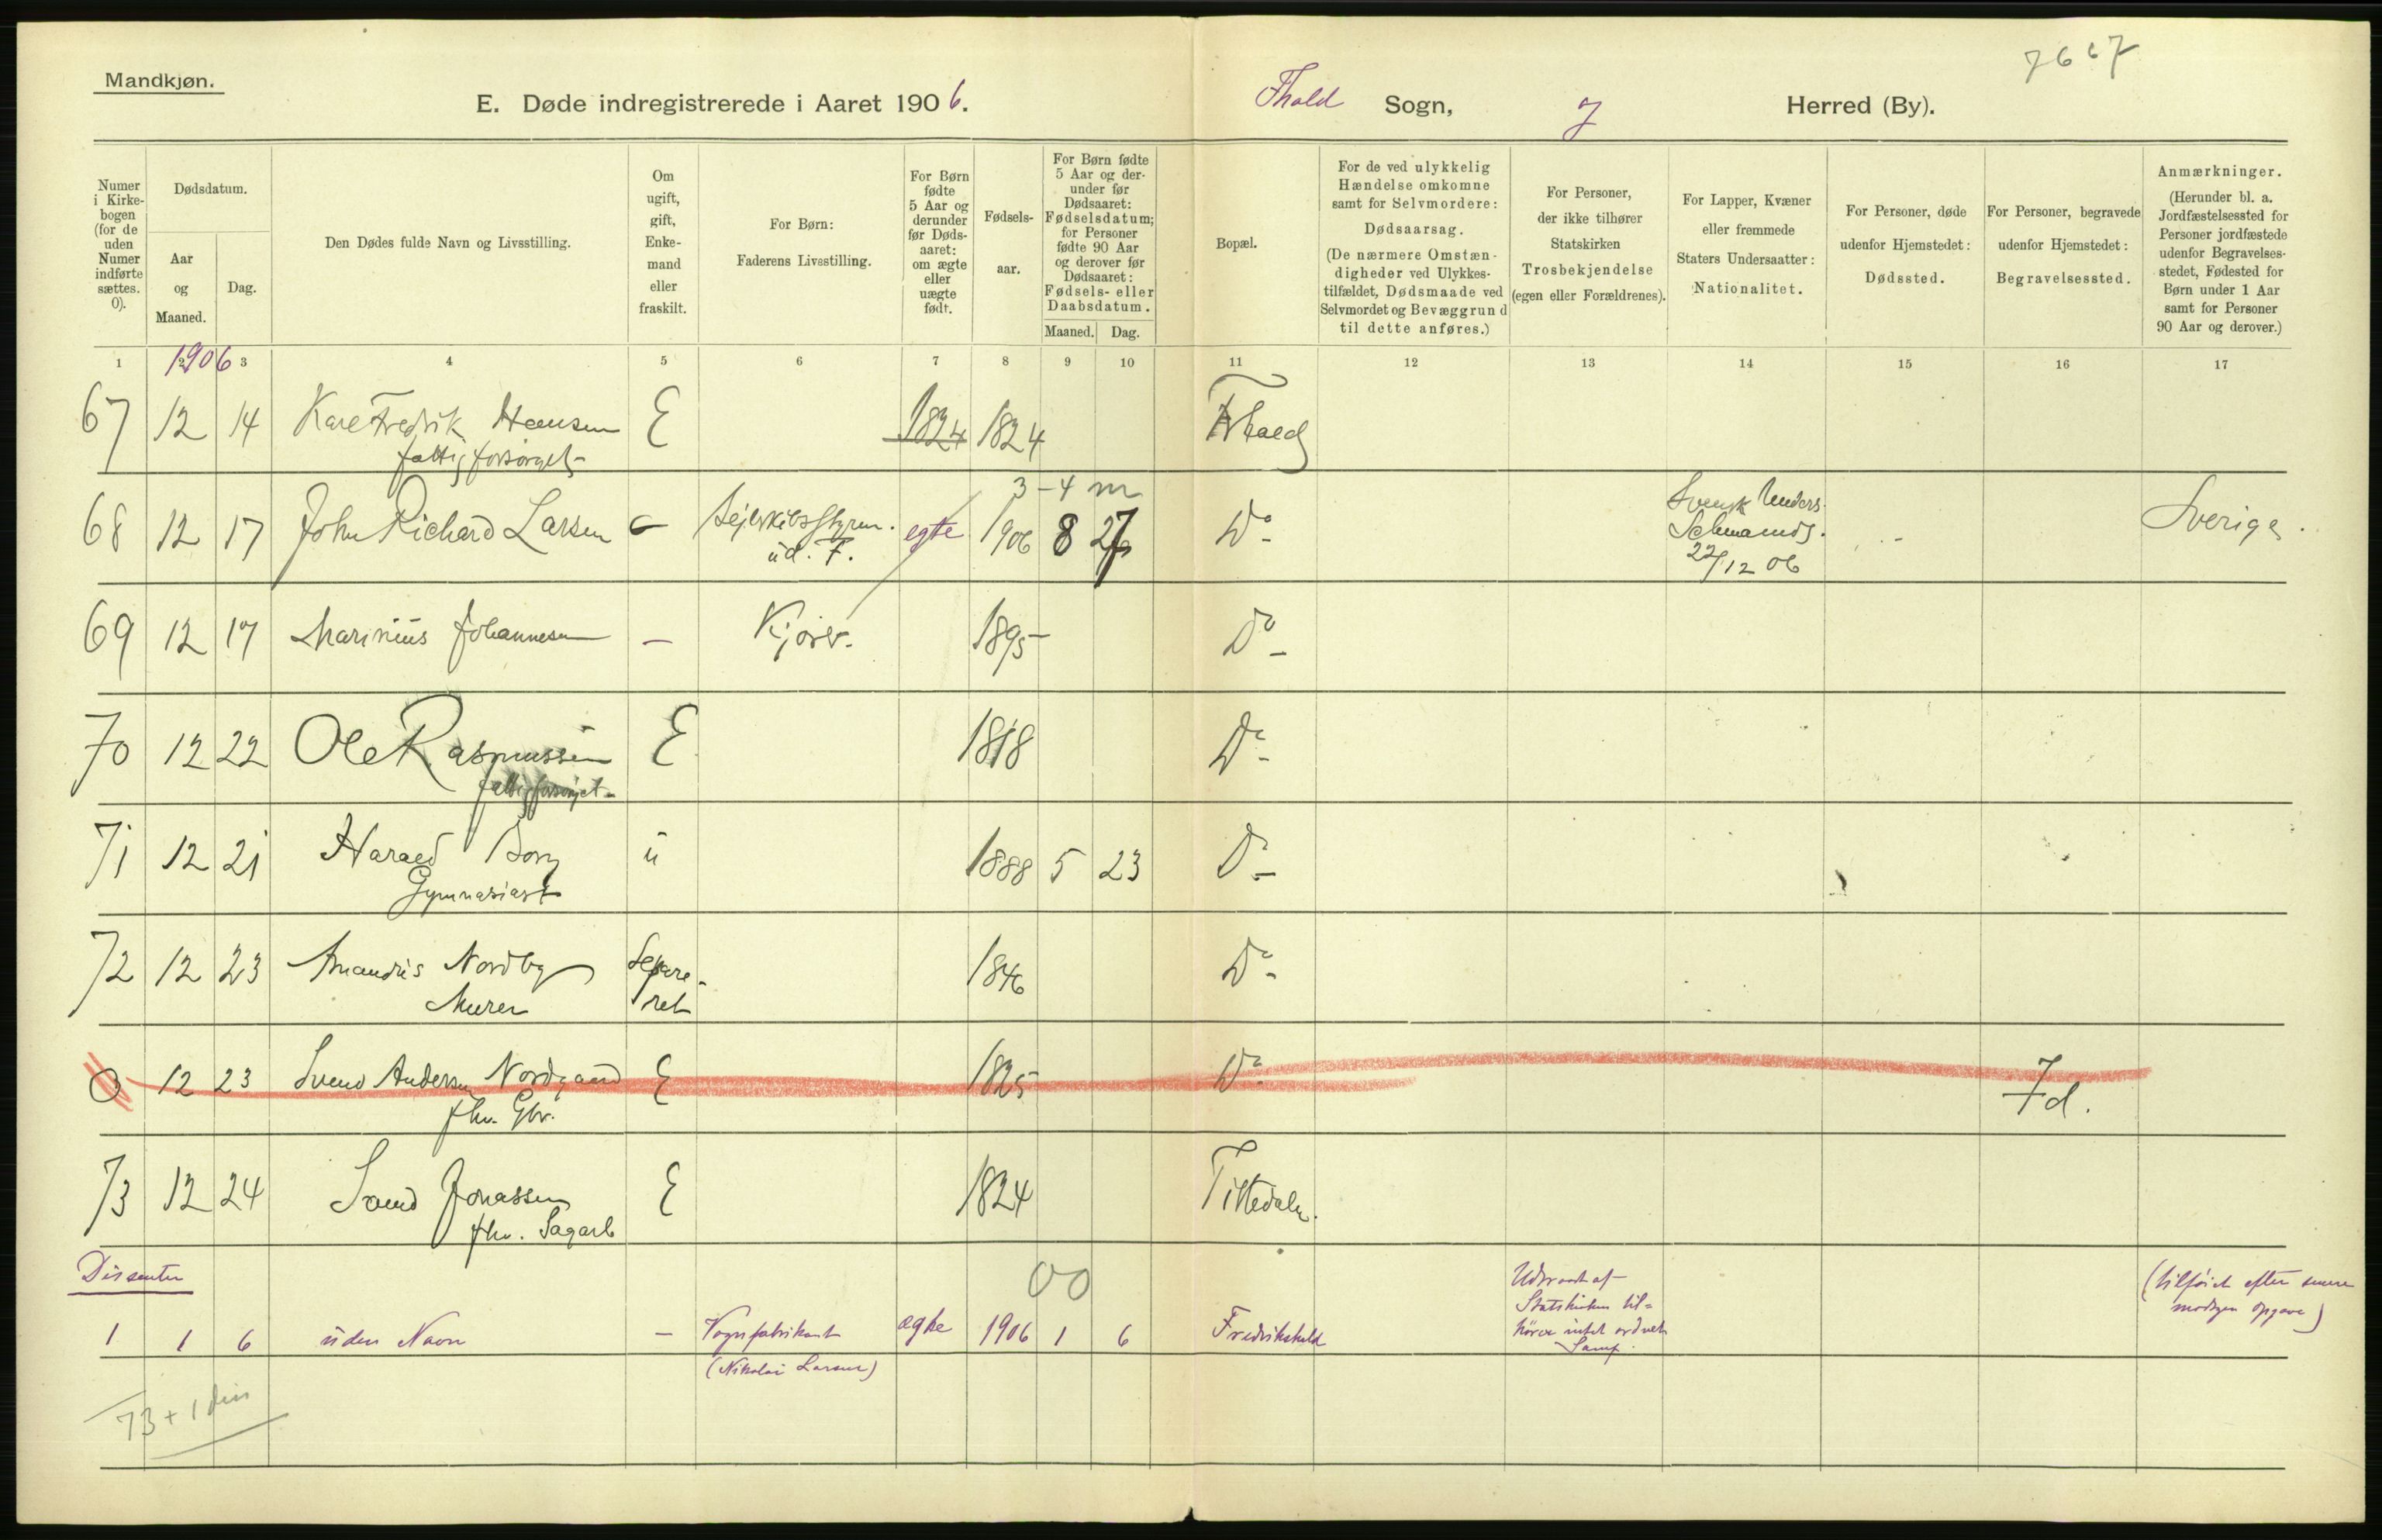 7667
Mandkjøn.
E. Døde indregistrerede i Aaret 1906.
Fhald Sogn, og Herred (By).
Numer i Kirke-bogen (for de uden Numer indførte sættes. 0).
Dødsdatum.
Aar og Maaned.
Dag.
Den Dødes fulde Navn og Livsstilling.
Om ugift, gift, Enke-mand eller fraskilt.
For Børn: Faderens Livsstilling.
For Børn fødte 5 Aar og derunder før Døds-aaret: om ægte eller uægte født.
Fødsels-aar.
For Børn fødte 5 Aar og der-under før Dødsaaret: Fødselsdatum; for Personer fødte 90 Aar og derover før Dødsaaret: Fødsels- eller Daabsdatum.
Maaned. Dag.
Bopæl.
For de ved ulykkelig Hændelse omkomne samt for Selvmordere: Dødsaarsag. (De nærmere Omstæn-digheder ved Ulykkes-tilfældet, Dødsmaade ved Selvmordet og Bevæggrund til dette anføres.)
For Personer, der ikke tilhører Statskirken Trosbekjendelse (egen eller Forældrenes).
For Lapper, Kvæner eller fremmede Staters Undersaatter: Nationalitet.
For Personer, døde udenfor Hjemstedet: Dødssted.
For Personer, begravede udenfor Hjemstedet: Begravelsessted.
Anmærkninger. (Herunder bl. a. Jordfæstelsessted for Personer jordfæstede udenfor Begravelses-stedet, Fødested for Børn under 1 Aar samt for Personer 90 Aar og derover.)
1 2 3 4 5 6 7 8 9 10 11 12 13 14 15 16 17
1906
67 12 14 Karl Fredrik Hansen E 1824 1824 Fhald
fattigforsörget
3-4 m
68 12 17 John Richard Larsen - Sejlskibsstyrm. egte 1906 8 27 Do - Svensk Unders. Sverige.
ud. F.
22/12 06
69 12 17 Marinius Johannesen - Kjörer. 1895 Do -
70 12 22 Ole Rasmussen E 1818 Do -
fattigforsörjet
71 12 21 Harald Borg u 1888 5 23 Do -
Gymnasiast
72 12 23 Amandus Nordby Separe-ret 1846 Do -
Murer
0 12 23 Svend Andersen Nordgaard E 1825 Do - Id.
fhv. Gbr.
73 12 24 Svend Jonassen E 1824 Tistedalen.
fhv. Sagarb
Dissenter
00
1 1 6 uden Navn - Vognfabrikant ægte 1906 1 6 Fredrikshald
(Nikolai Larsen)
Udtraadt af
Statskirken til=
hörer intet ordnet
Samf.
(tilföiet efter senere
modtagen opgave)
73 + 1 diss